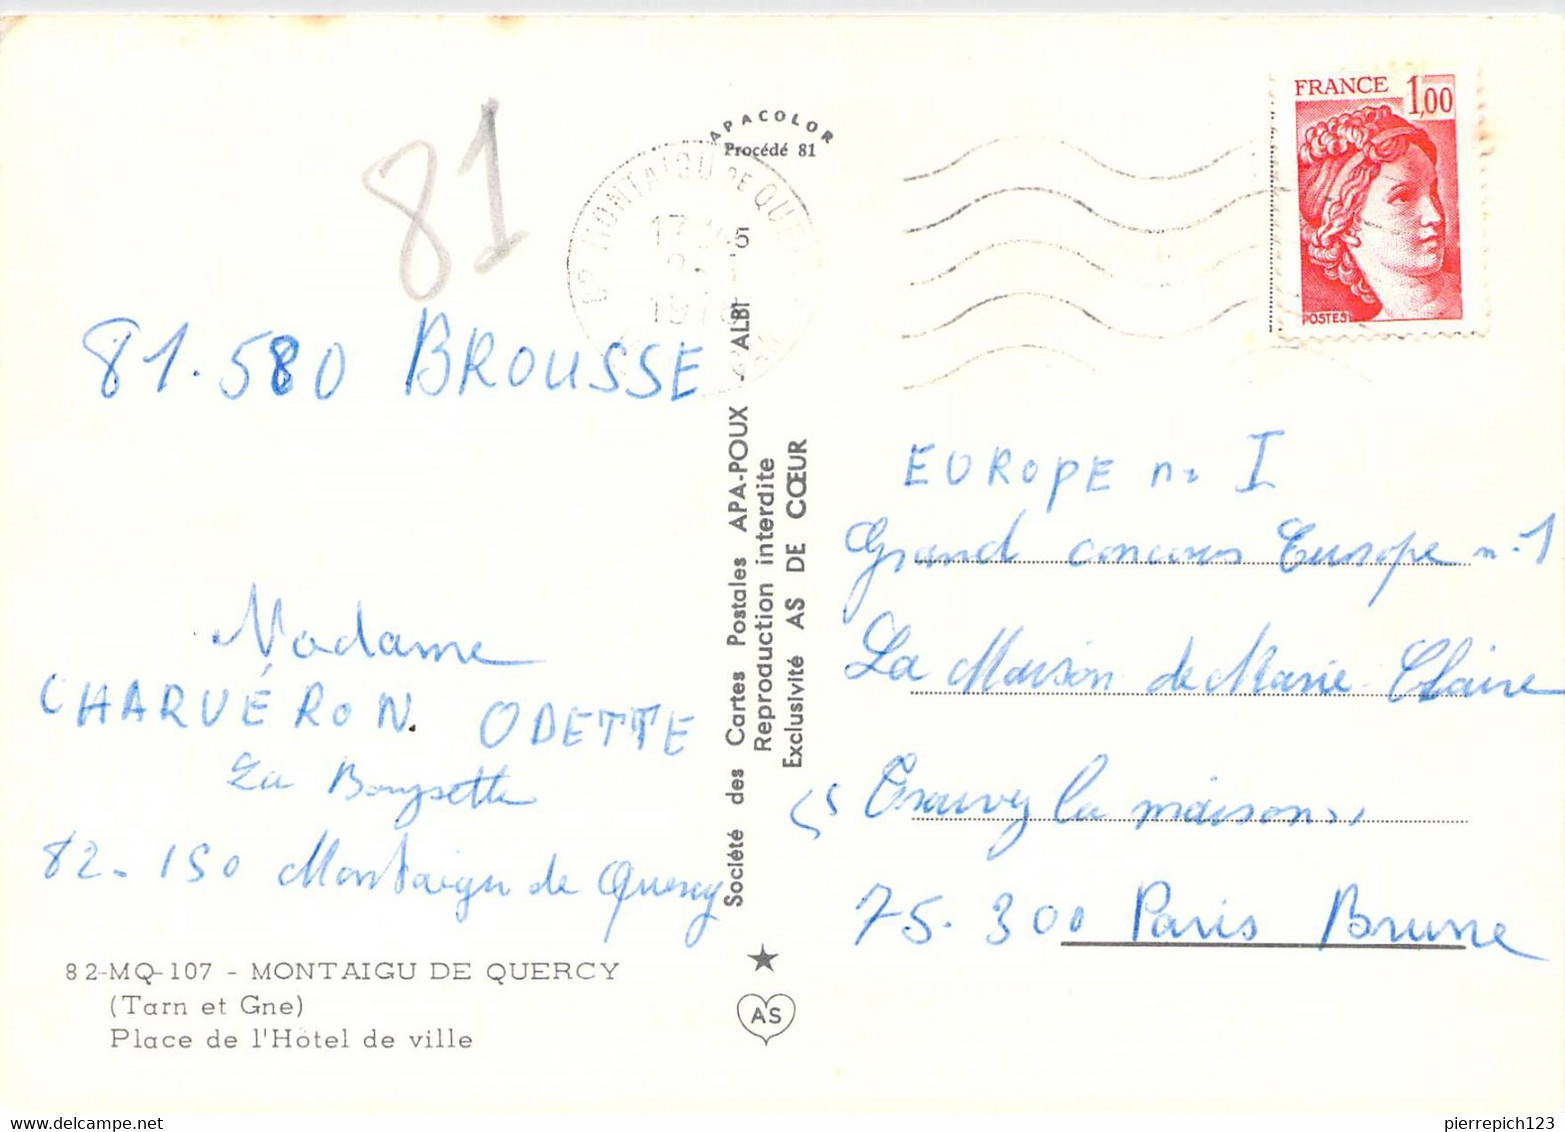 81
APACOLOR
Procédé 81
FRANCE 1,00
POSTES
MONTAIGU DE QUE
17
5
197
81.580 BROUSSE
Madame
CHARVÉRON. ODETTE
La Bouysette
82-150 Montaigu de Quercy
82-MQ-107 - MONTAIGU DE QUERCY
(Tarn et Gne)
Place de l'Hôtel de ville
Société des Cartes Postales APA-POUX - ALBI
Reproduction interdite
Exclusivité AS DE CŒUR
AS
EUROPE n= I
Grand concours Europe n.1
La Maison de Marie Claire
"Trouvez la maison"
75.300 Paris Brune
pierrepich123